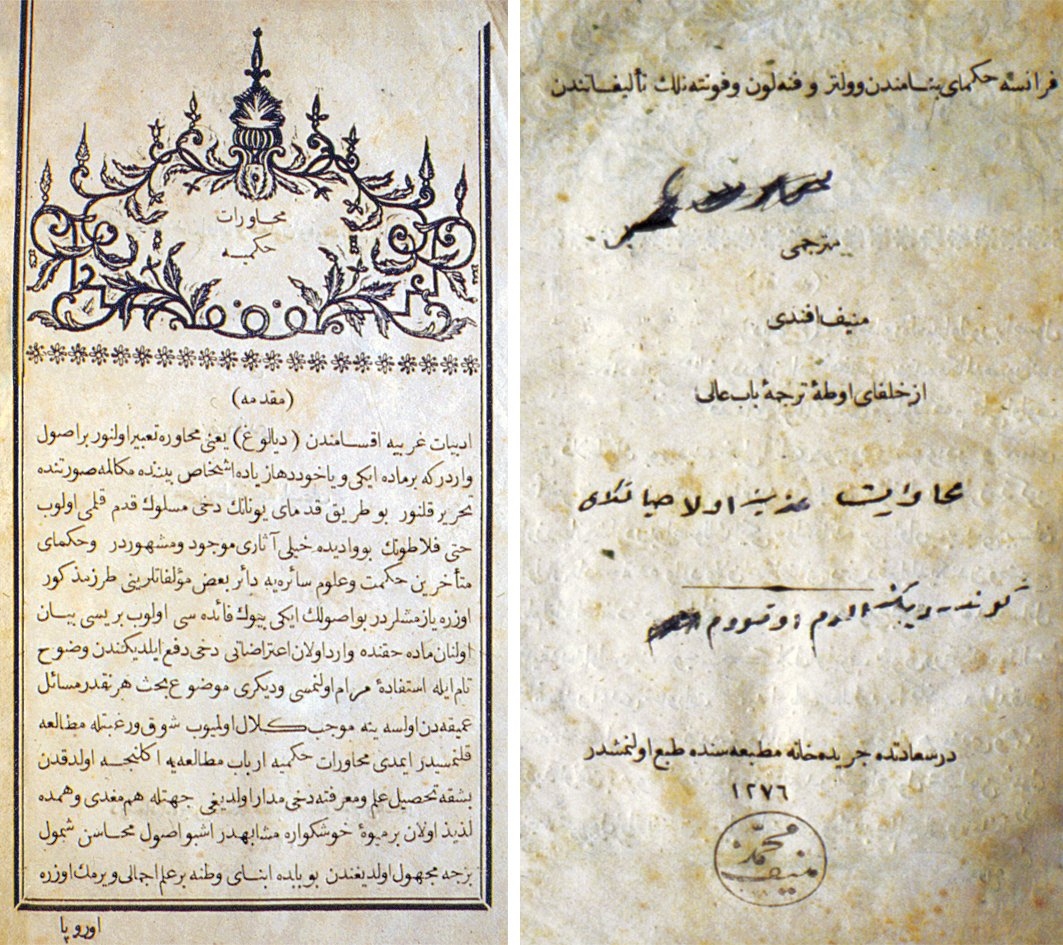 محاورات
حكميه
(مقدمه)
ادبيات غربيه اقسامندن (ديالوغ) يعنى محاوره تعبير اولنور بر اصول
واردركه بر ماده ايكى و ياخود دها زياده اشخاص بيننده مكالمه صورتنده
تحرير قلنور بو طريق قدماى يونانك دخى مسلوك قدم قلمى اولوب
حتى فلاطونك بو واديده خيلى آثارى موجود ومشهوردر وحكماى
متأخرين حكمت وعلوم سائره يه دائر بعض مؤلفاتلرينى طرز مذكور
اوزره يازمشلردر بو اصولك ايكى بيوك فائده سى اولوب بريسى بيان
اولنان ماده حقنده وارد اولان اعتراضاتى دخى دفع ايلديكندن وضوح
تام ايله استفادهٔ مرام اولنمسى وديكرى موضوع بحث هر نقدر مسائل
عميقه دن اولسه ينه موجب كلال اولميوب شوق ورغبتله مطالعه
قلنمسيدر ايمدى محاورات حكميه ارباب مطالعه يه اكلنجه اولدقدن
بشقه تحصيل علم ومعرفته دخى مدار اولديغى جهتله هم مغدى وهمده
لذيذ اولان بر ميوهٔ خوشكواره مشابهدر اشبو اصول محاسن شمول
بزجه مجهول اولديغندن بو بابده ابناى وطنه بر علم اجمالى ويرمك اوزره
اوروپا
فرانسه حكماى بنامندن وولتر و فنه لون و فونتنه نلك تأليفاتندن
مترجمى
منيف افندى
از خلفاى اوطهٔ ترجمهٔ باب عالى
محاورات عزيز اولا
كوندرديكز الدم اوقودم
درسعادتده جريده خانه مطبعه سنده طبع اولنمشدر
١٢٧٦
محمد
منيف